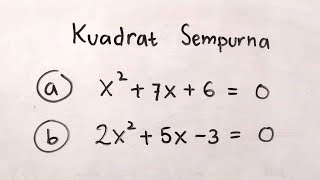 Kuadrat Sempurna
(a) x² + 7x + 6 = 0
(b) 2x² + 5x - 3 = 0